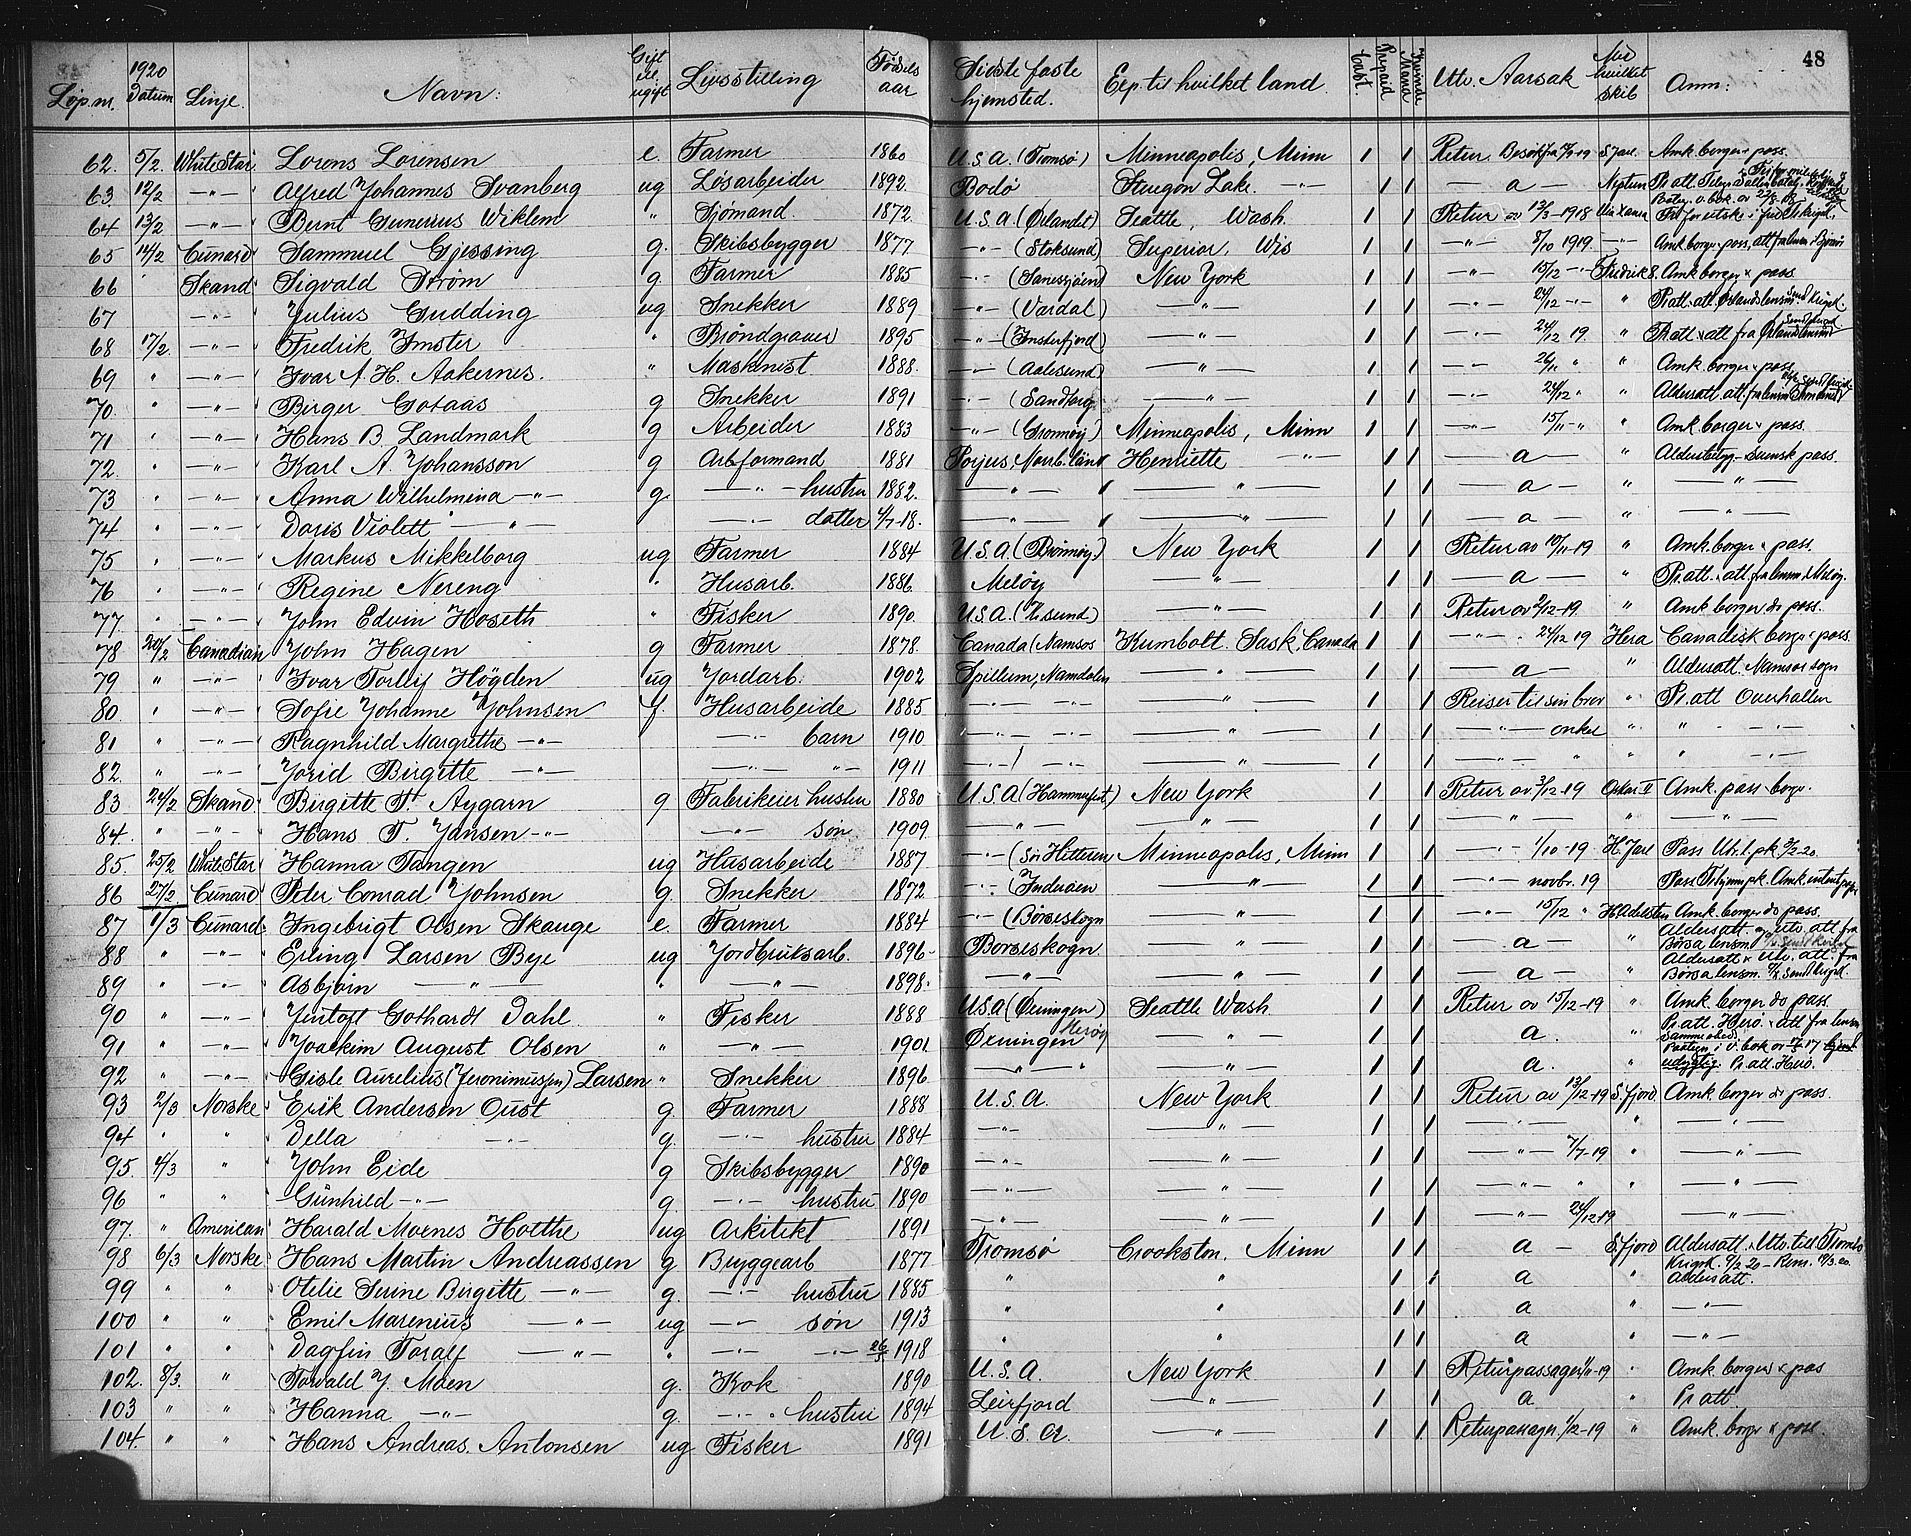 48
Løp.nr. 1920 Datum Linje. Navn: Gift ell. ugift Livsstilling Fødsels aar Sidste faste hjemsted. Rep. til hvilket land. Cash. Prepaid Mand Kvinde Utv. Aarsak Med hvilket skib Anm:
62. 5/2 White Star Lorens Lorensen e. Farmer 1860 U.S.A. (Tromsø) Minneapolis, Minn 1 1 Retur. Besøk fra 19 S. Jarl. Amk. borger pass.
63. 12/2 —"— Alfred Johannes Svanberg ug Løsarbeider 1892. Bodø Sturgeon Lake. —"— 1 1 — a — Neptun Pr. att.
64 13/2 —"— Bernt Gunerius Wiklem " Sjømand. 1872. U.S.A (Ørlandet) Seattle, Wash. 1 1 Retur av 13/3-1918
65 14/2 Cunard Sammuel Gjessing g. Skibsbygger 1877 —"— (Stoksund) Superior, Wis 1 1 —"— 8/10 1919. —"— Amk. borger pass, att fra
66 " Skand. Sigvald Strøm g. Farmer 1885 —"— (Sanesjøen) New York 1 1 —"— 15/12 —"— Fredrik 8. Amk. borger & pass
67 —"— Julius Gudding ug Snekker 1889 —"— (Værdal) —"— 1 1 —"— 24/12 —"— " Pr. att. att. Ørlands lensm.
68 17/2. —"— Fredrik Imster " Brøndgraver 1895 —"— (Imsterfjord) —"— 1 1 —"— 24/12 19. " Pr. att & att fra Ørland lensm
69 " —"— Ivar A. H. Aakernes. " Maskinist 1888. —"— (Aalesund) —"— 1 1 —"— 26/11 " " Amk. borger & pass
70. " —"— Birger Gotaas g Snekker 1891 —"— (Sandberg —"— 1 1 —"— 24/12 " " Aldersatt. att. fra lensm
71 " —"— Hans B. Landmark g Arbeider 1883 —"— (Grønnøy) Minneapolis, Minn 1 1 —"— 15/11 " " Amk. borger & pass.
72. " —"— Karl A. Johansson g Arbformand 1881 Porjus, Norrb. län Henriette —"— 1 1 — a — " Aldersbetyg Svensk pass.
73 " —"— Anna Wilhelmina —"— g. —"— hustru 1882. —"— —"— 1 1 — a — " —"—
74 " —"— Doris Violett —"— —"— datter 4/7-18. —"— —"— 1 1 — a — " —"—
75 " —"— Markus Mikkelborg ug Farmer 1884 U.S.A. (Brønnøy) New York 1 1 Retur av 10/11-19 " Amk. borger & pass.
76 " —"— Regine Nereng " Husarb. 1886. Meløy —"— 1 1 — a — " Pr. att. att. fra lensm. i Meløy.
77. " —"— John Edvin Hoseth " Fisker 1890. U.S.A. (Kr.sund) —"— 1 1 Retur av 2/12-19. " Amk. borger do pass.
78 20/2 Canadian John Hagen g Farmer 1878. Canada (Namsos Humbolt. Sask. Canada 1 1 —"— 24/12 19 Hera Canadisk borger pass
79 " —"— Ivar Torleif Högden ug Jordarb. 1902 Spillum, Namdalen —"— 1 1 — a — " Aldersatt. Namsos sogn
80 " —"— Sofie Johanne Johnsen f. Husarbeide 1885 —"— —"— —"— 1 1 Reiser til sin bror " Pr. att Overhallen
81 " —"— Ragnhild Margrethe —"— —"— barn 1910. —"— —"— —"— 1 1 —"— onkel " " —"—
82. " —"— Jorid Birgitte —"— —"— " 1911 —"— —"— 1 1 —"— " " " —"—
83 24/2 Skand. Birgitte St. Aygarn g Fabrikeier hustru 1880 U.S.A (Hammerfest) New York 1 1 Retur av 3/12-19 Oskar II Amk. pass borger.
84. " —"— Hans T. Jansen —"— —"— søn 1909 —"— —"— 1 1 —"— " —"—
85. 25/2 White Star Hanna Tangen ug Husarbeide 1887 —"— (Sør Hitteren Minneapolis, Minn 1 1 —"— 1/10-19 H. Jarl Pass
86 27/2 Cunard Peter Conrad Johnsen g. Snekker 1872 —"— (Inderøen —"— 1 1 —"— novbr. 19 Pass
87 1/3 Cunard. Ingebrigt Olsen Skauge e. Farmer 1884 —"— (Børseskogn —"— 1 1 —"— 15/12 " Amk. borger do pass.
88 " —"— Erling Larsen Bye ug Jordbruksarb. 1896 Borseskogn —"— 1 1 — a — " Aldersatt. og Utv. att. fra Børsa lensm.
89 " —"— Asbjørn —"— " —"— 1898. —"— —"— 1 1 — a — " Aldersatt & Utv. att. fra Børsa lensm.
90 " —"— Jentoft Gothardt Dahl " Fisker 1888 U.S.A (Ønningen) Seattle Wash 1 1 Retur av 15/12-19 " Amk. borger do pass
91 " —"— Joackim August Olsen " —"— 1901. Ønningen Herøy —"— 1 1 a. " Pr. att. Herø. & att fra lensm sammested.
92 " —"— Gisle Aurelius (Jeronimussen) Larsen " Snekker 1896 —"— —"— 1 1 a. " Pr. att. Herø.
93 2/3 Norske Erik Andersen Oust g. Farmer 1888 U.S.A. New York 1 1 Retur av 13/12-19 S. fjord Amk. borger & pass.
94 " " Della —"— g. —"— hustru 1884 —"— —"— 1 1 —"— " —"—
95. 4/3 " John Eide g Skibsbygger 1890 —"— —"— 1 1 —"— 7/7-19 " —"—
96 " " Günhild —"— g. —"— hustru 1890 —"— —"— 1 1 —"— " " —"—
97. " American Harald Moenes Hotthe ug Arkitekt 1891 —"— —"— 1 1 —"— 24/12-19 —"—
98 6/3 Norske Hans Martin Andreassen g Byggearb 1877 Tromsø Crookston. Minn 1 1 a — S. fjord Aldersatt. Utv. till. Tromsø
99 " " Otelie Serine Birgitte —"— g. —"— hustru 1885 " " 1 1 a " Aldersatt.
100 " " Emil Marenius —"— ug —"— søn 1913 " " 1 1 a " —"—
101 " " Dagfin Toralf —"— " —"— —"— 26/5 1918 " " 1 1 a " —"—
102. 8/3. " Torvald J. Moen g. Kok 1890 U.S.A. New York 1 1 Returpassager 1/11-19 " Amk. borger & pas
103 " " Hanna —"— g. —"— hustru 1894 Leirfjord —"— 1 1 a " Pr. att
104. " " Hans Andreas Antonsen ug Fisker 1891 U.S.A. —"— 1 1 Returpassager. 1/12-19 " Amk. borger & pass.